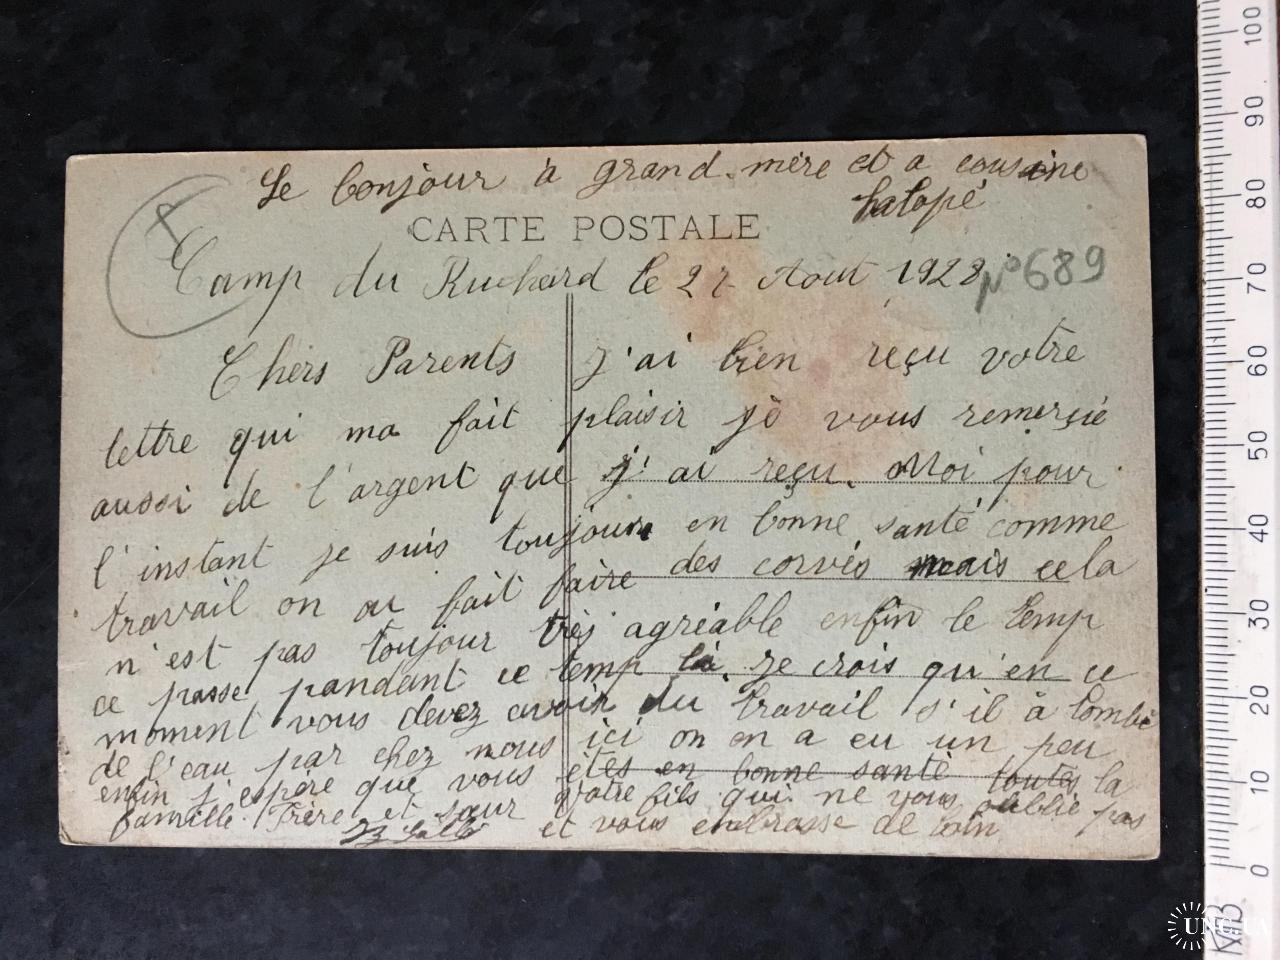 Le bonjour à grand.mère et a cousine
CARTE POSTALE
Camp du Ruchard le 27 Août 1928
N° 689
Chers Parents J'ai bien reçu votre
lettre qui ma fait plaisir je vous remerçie
aussi de l'argent que j'ai reçu. Moi pour
l'instant je suis toujour en bonne santé comme
travail on ai fait faire des corvés mais cela
n'est pas toujour très agréable enfin le temp
ce passe pandant ce temp là. Je crois qu'en ce
moment vous devez avoir du travail s'il à tombé
de l'eau par chez nous ici on en a eu un peu
enfin j'espére que vous êtes en bonne santé toutes la
famille. Frère et sœur Votre fils qui ne vous oublie pas
et vous enbrasse de loin
100
90
80
70
60
50
40
30
20
10
0
UNC.UA